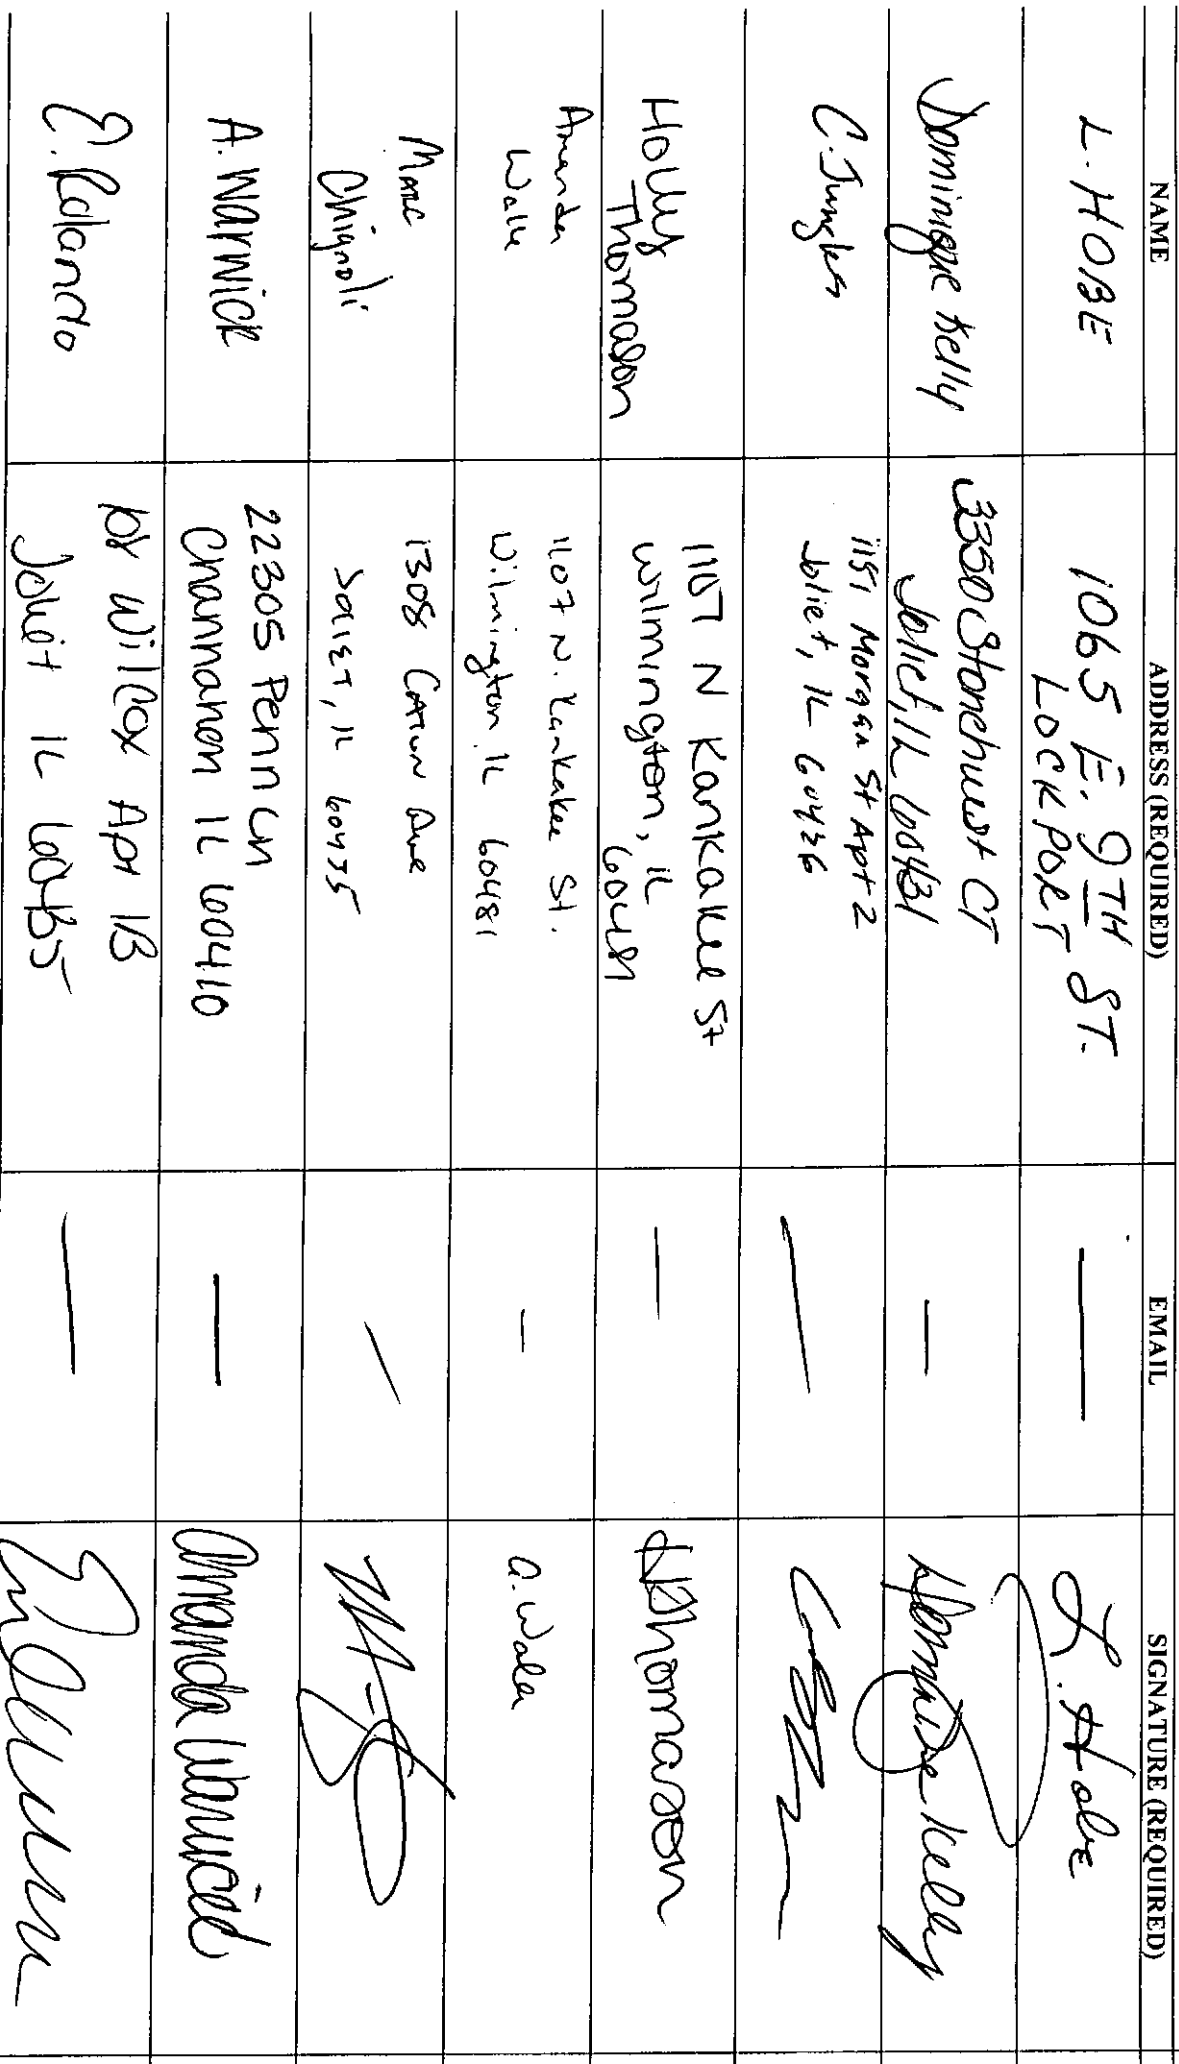 NAME ADDRESS (REQUIRED) EMAIL SIGNATURE (REQUIRED)
L. HOBE
1065 E. 9TH ST.
LOCKPORT
—
L. Hobe
Dominique Kelly
3350 Stonehurst CT
Joliet, IL 60431
—
Dominique Kelley
C. Jungles
1151 Morgan St Apt 2
Joliet, IL 60436
—
Holly
Thomason
1107 N Kankakee St
Wilmington, IL
60481
—
Thomason
Amanda
Walke
1107 N. Kankakee St.
Wilmington, IL 60481
—
Marc
Chignoli
1308 Caton Ave
Joliet, IL 60435
—
A. Warnick
22305 Penn Ln
Channahon IL 60410
—
Amanda Warnick
E. Rolando
Wilcox Apt 1B
Joliet IL 60435
—